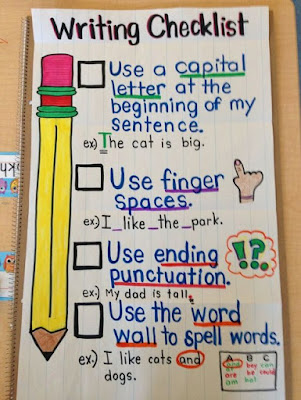 Writing Checklist
Use a capital
letter at the
beginning of my
sentence.
ex) The cat is big.
Use finger
spaces.
ex.) I_like_the_park.
Use ending
punctuation.
!?.
ex.) My dad is tall.
Use the word
wall to spell words.
ex.) I like cats and
dogs.
A B C
and boy can
are be could
am but